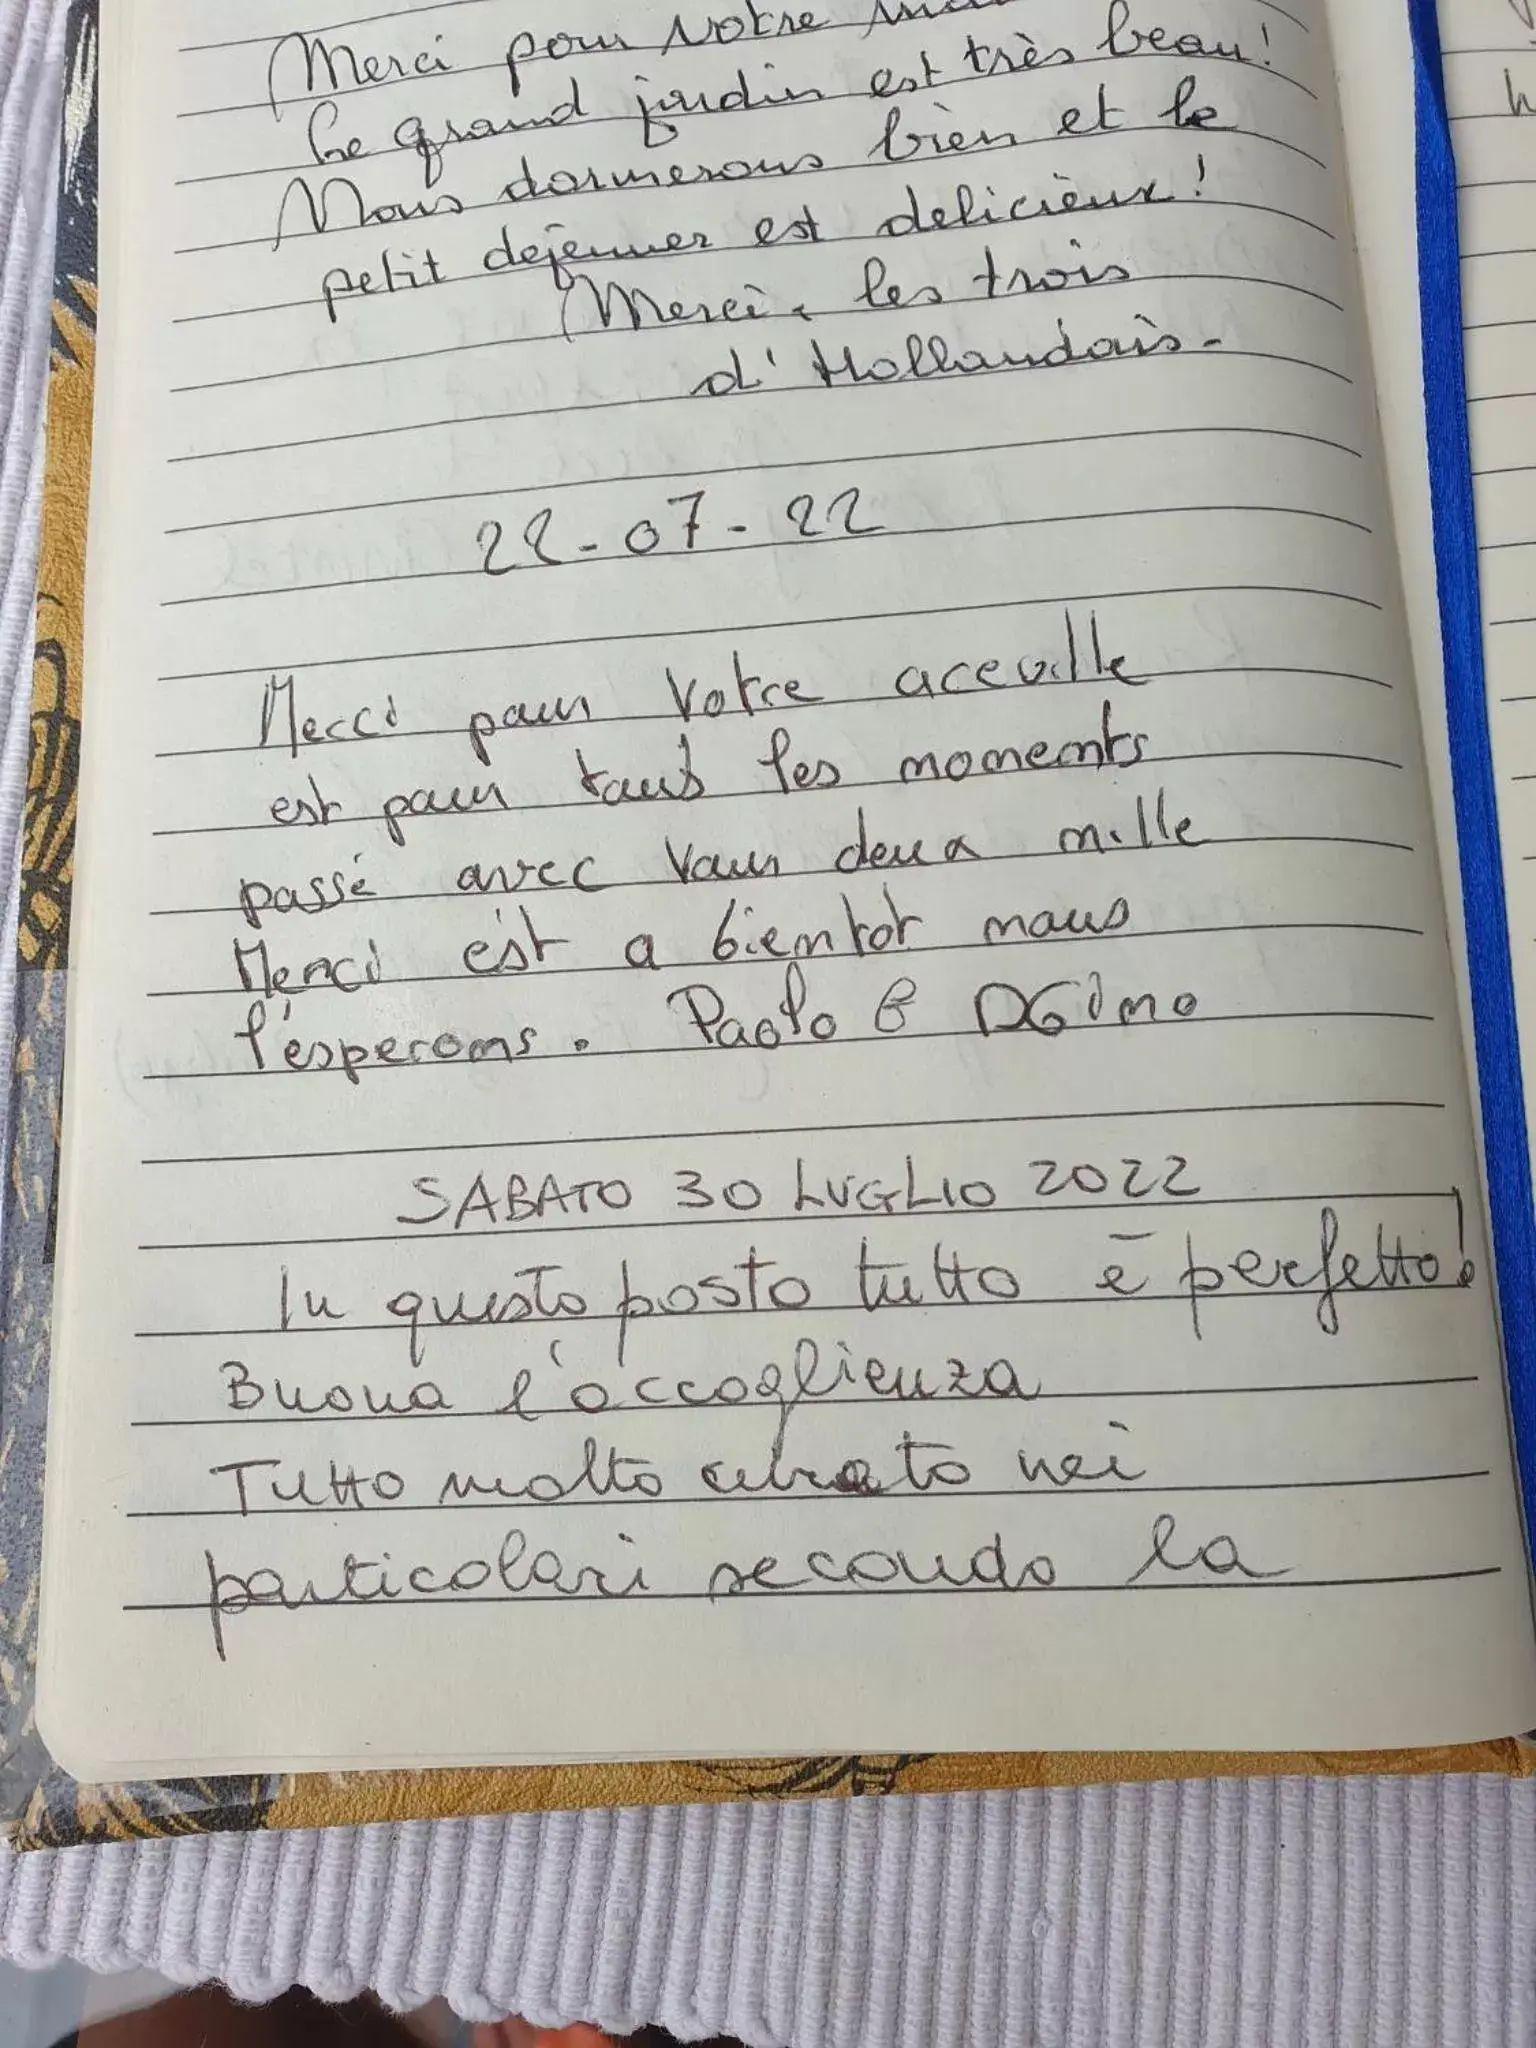 Merci pour votre
Le grand jardin est très beau!
Nous dormerons bien et le
petit dejeuner est delicièux!
Merci, les trois
d'Hollandais-
22-07-22
Merci pour votre aceuille
est pour tout les moments
passé avec vous deux mille
Merci est a bientot nous
l'esperons. Paolo & 
SABATO 30 LUGLIO 2022
In questo posto tutto è perfetto!
Buona l'accoglienza
Tutto molto curato nei
particolari secondo la